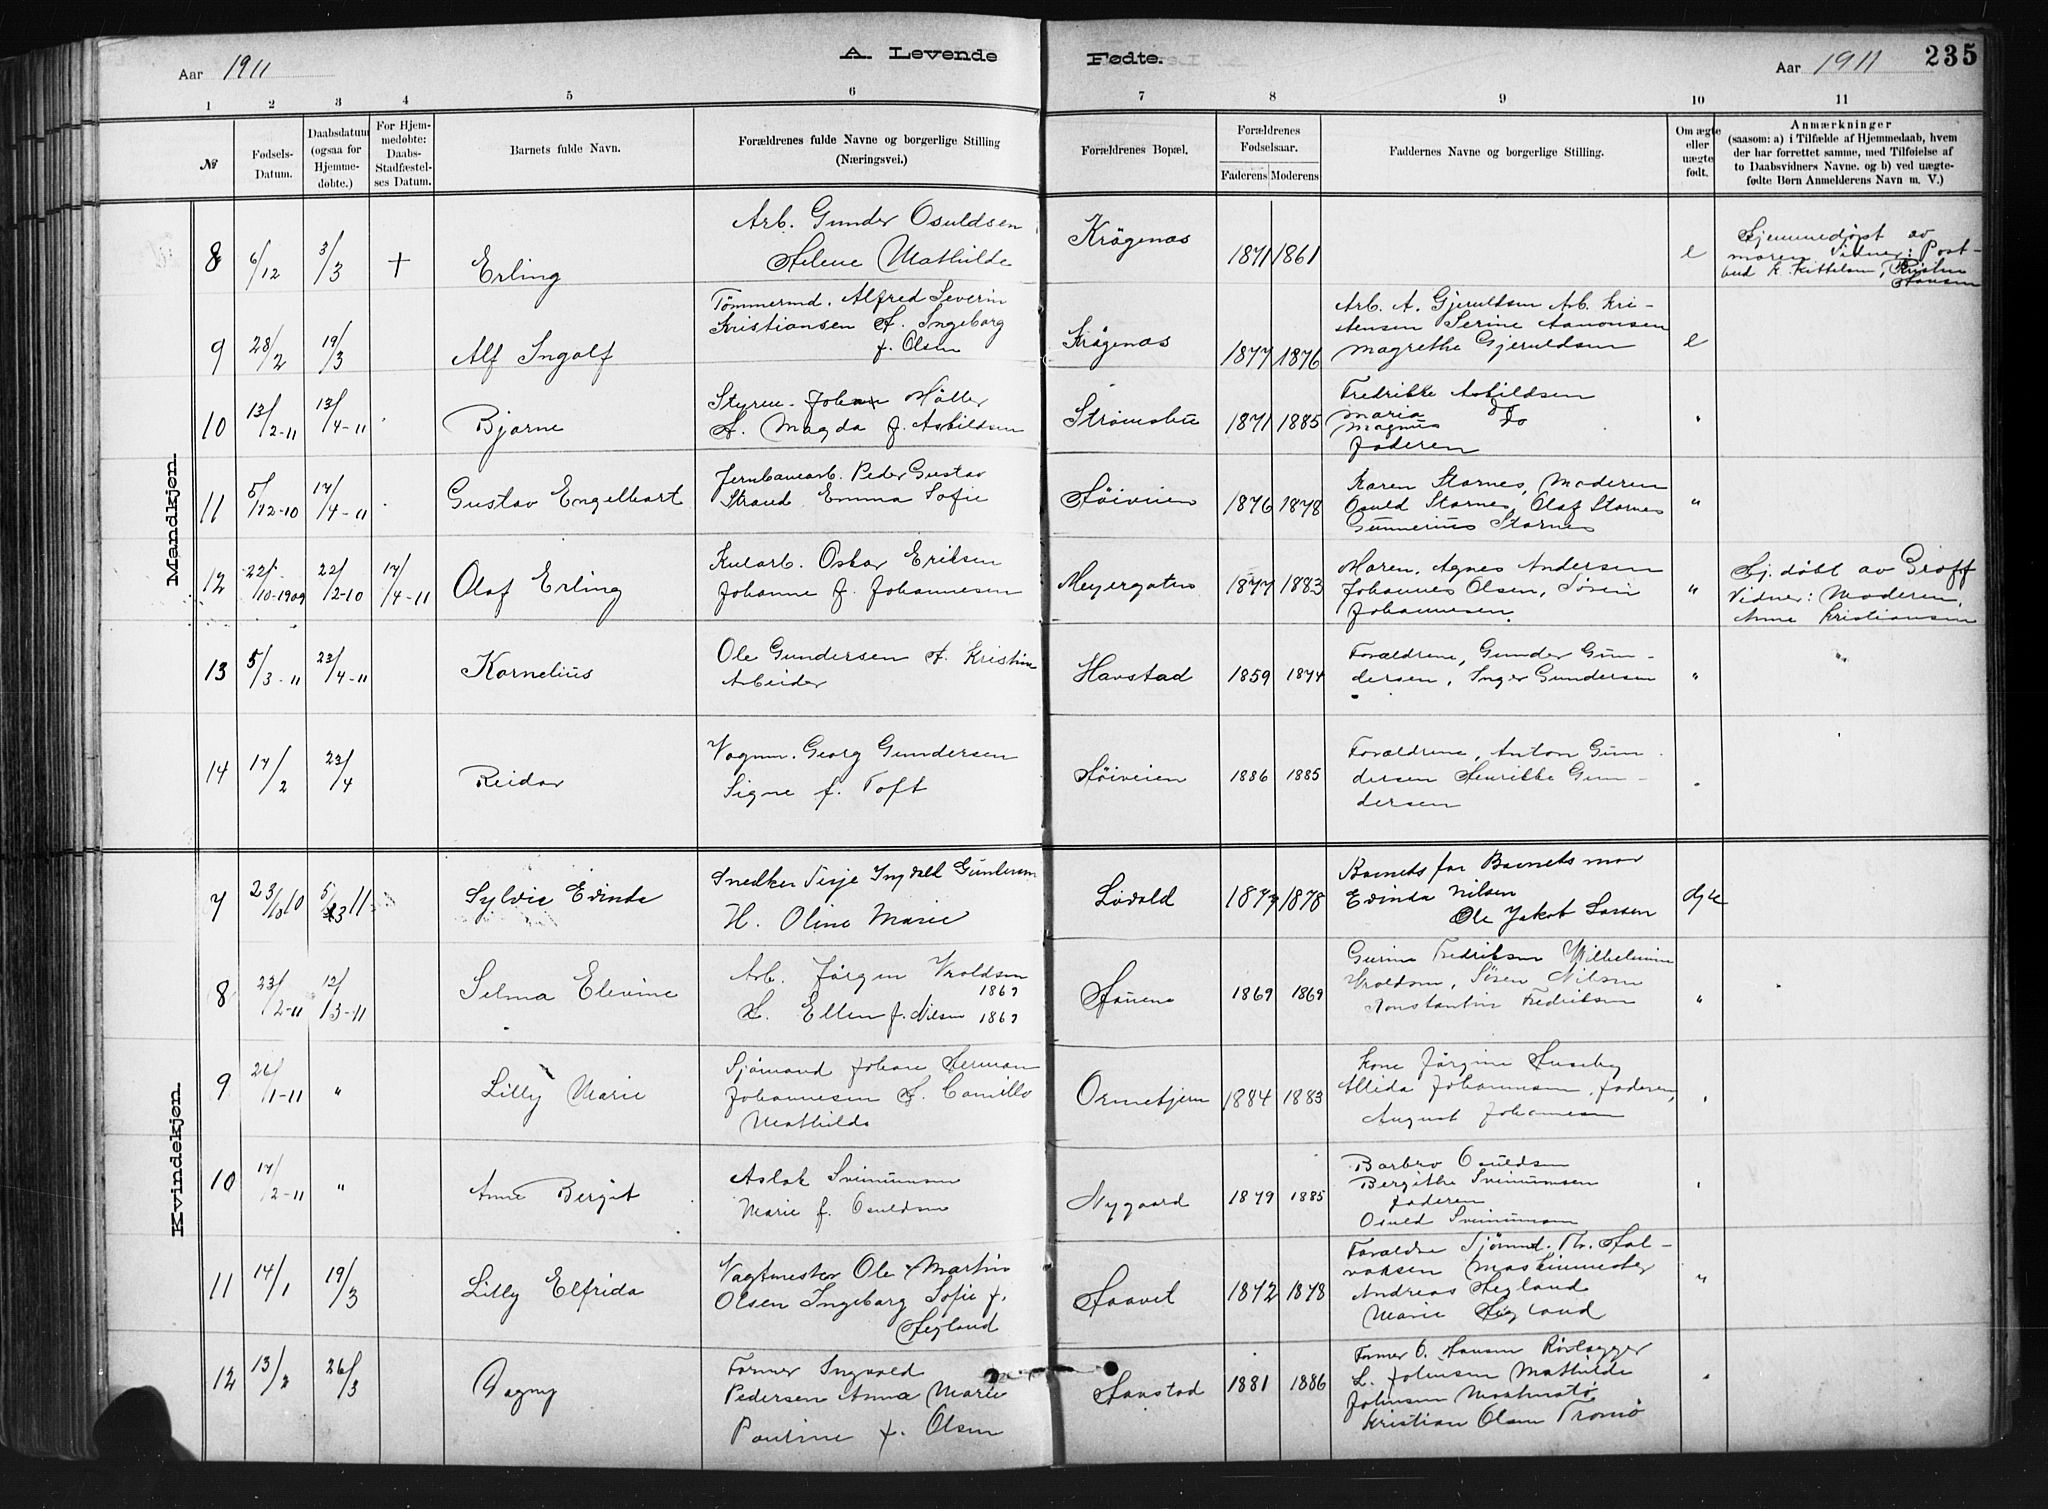 Aar 1911
A. Levende
Fødte.
Aar 1911
235
1 2 3 4 5 6 7 8 9 10 11
№
Fødsels-
Datum.
Daabsdatum
(ogsaa for
Hjemme-
døbte.)
For Hjem-
medøbte:
Daabs-
Stadfæstel-
ses Datum.
Barnets fulde Navn.
Forældrenes fulde Navne og borgerlige Stilling
(Næringsvei.)
Forældrenes Bopæl.
Forældrenes
Fødselsaar.
Faderens Moderens
Faddernes Navne og borgerlige Stilling.
Om ægte
eller
uægte
født.
Anmærkninger
(saasom: a) i Tilfælde af Hjemmedaab, hvem
der har forrettet samme, med Tilføielse af
to Daabsvidners Navne. og b) ved uægte-
fødte Børn Anmelderens Navn m. V.)
Mandkjøn.
8 6/12 3/3 + Erling
Arb. Gunder Osuldsen
Helene Mathilde
Krøgenæs 1871 1861
e
Hjemmedøpt av
moren Vidner: Post-
bud K. Kittelsen, Kristen
Hansen
9 28/2 19/3 Alf Ingolf
Tømmermd. Alfred Severin
Kristiansen H. Ingeborg
f. Olsen
Krøgenæs 1877 1876
Arb. A. Gjeruldsen Arb. Kri-
stensen Serine Aanonsen
Magrethe Gjeruldsen
e
10 13/2-11 13/4-11 Bjarne
Styrm. Johan Møller
H. Magda f. Asbildsen
Strømsbu 1871 1885
Fredrikke Asbildsen
Maria Do
Magnus Do
Faderen
"
11 5/12-10 17/4-11 Gustav Engelhart
Jernbanearb. Peder Gustav
Strand Emma Sofie
Høiveien 1876 1878
Karen Starnes, Moderen
Osuld Starnes, Olaf Starnes
Gunnerius Starnes
"
12 22/10-1909 22/2-10 17/4-11 Olaf Erling
Kularb. Oskar Eriksen
Johanne f. Johannesen
Meyergaten 1877 1883
Maren, Agnes Andersen
Johannes Olsen, Søren
Johannesen.
"
Hj. døbt av Groff
Vidner: Moderen,
Anne Kristiansen
13 5/3-11 23/4-11 Kornelius
Ole Gundersen H. Kristine
Arbeider
Havstad 1859 1874
Forældrene, Gunder Gun-
dersen, Inger Gundersen
"
14 17/2 23/4 Reidar
Vognm. Georg Gundersen
Signe f. Toft
Høiveien 1886 1885
Forældrene, Anton Gun-
dersen Henrikke Gun-
dersen
Kvindekjøn.
7 23/10 10 5/3 11 Sylvie Evinda
Snedker Terje Ingvald Gundersen
H. Oline Marie
Løvold 1877 1878
Barnets far Barnets mor
Evinda Nilsen
Ole Jakob Larsen
egte
8 23/2-11 12/3-11 Selma Elevine
Arb. Jørgen Vroldsen
1869
H. Ellen f. Nilsen 1869
Houene 1869 1869
Gurine Fredriksen Wilhelmine
Vroldsen, Søren Nilsen
Konstantin Fredriksen
"
9 26/1-11 " Lilly Marie
Sjømand Johan Herman
Johannesen H. Camilla
Mathilda
Ormetjern 1884 1883
Kone Jørgine Huseby
Allida Johannesen, Faderen,
August Johannesen
10 17/2-11 " Anne Bergit
Aslak Sveinumsen
Marie f. Osuldsen
Nygaard 1879 1885
Barbro Osuldsen
Bergithe Sveinumsen
Faderen
Osuld Sveinumsen
11 14/1 19/3 Lilly Elfrida
Vagtmester Ole Martin
Olsen Ingeborg Sofie f.
Hegland
Haavet 1872 1878
Forældre Sjømd. Th. Hal-
vorsen Maskinmester
Andreas Hegland
Marie Hegland
"
12 13/2 26/3 Dagny
Former Ingvald
Pedersen Anna Marie
Pauline f. Olsen
Havstad 1881 1886
Former O. Hansen Rørlægger
L. Johnsen Mathilde
Johnsen
Kristian Olsen Tromø